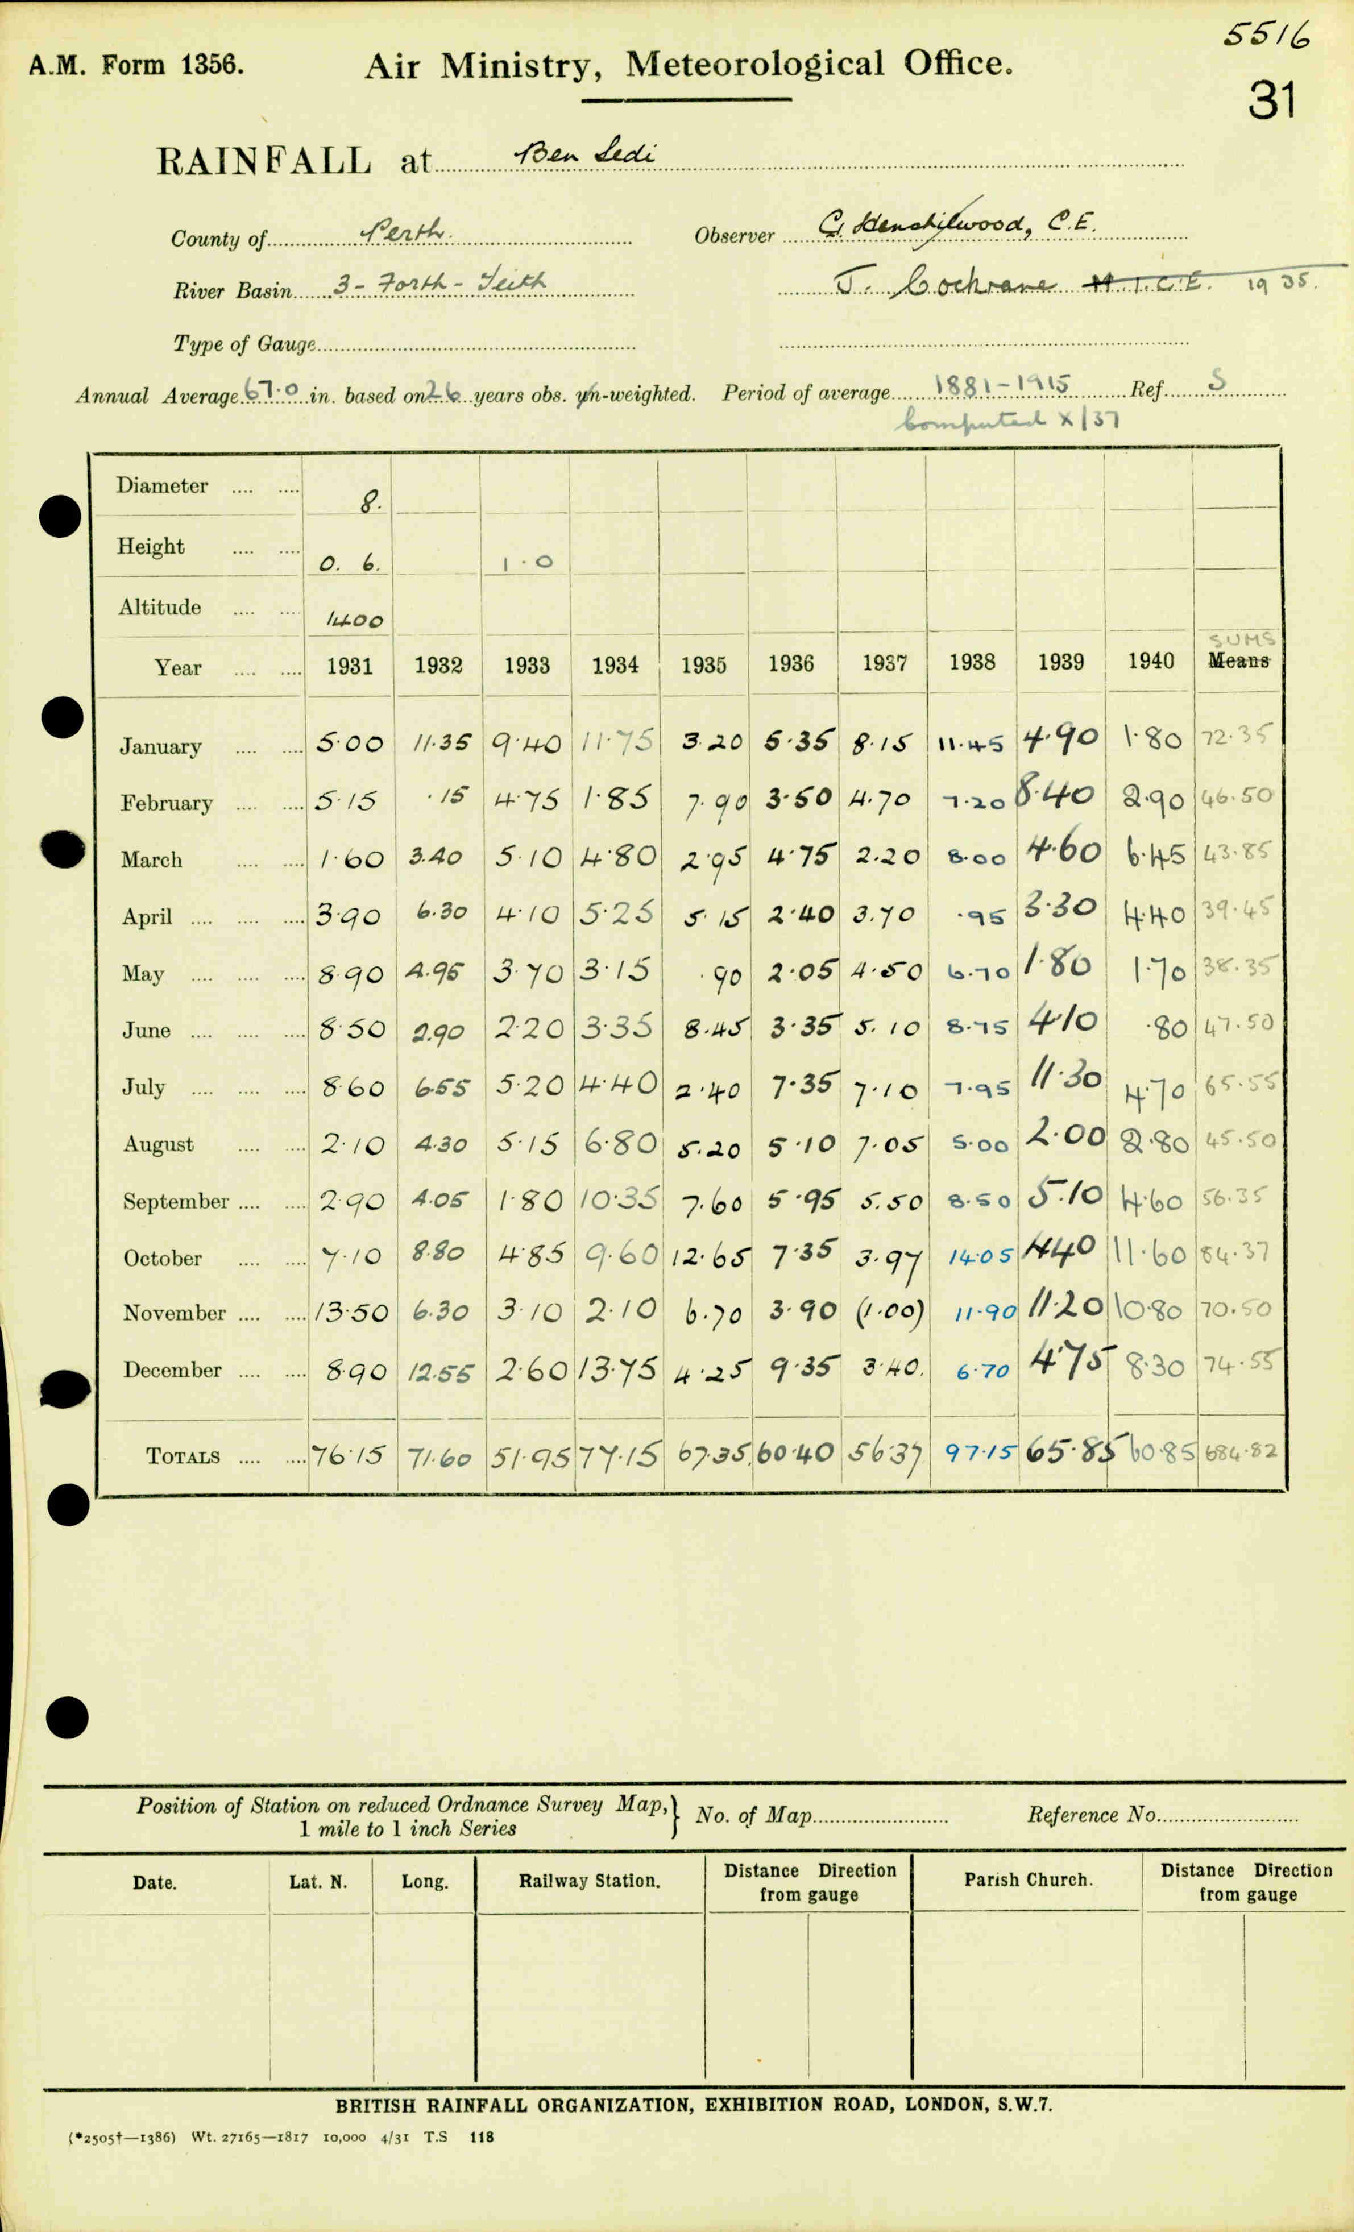 5516
A.M. Form 1356. Air Ministry, Meteorological Office.
31
RAINFALL at Ben Ledi
County of Perth. Observer G. Henshilwood, C.E.
River Basin 3 - Forth - Teith J. Cochrane M.I.C.E. 1935.
Type of Gauge
Annual Average 67.0 in. based on 26 years obs. un-weighted. Period of average 1881-1915 Ref. S
Computed X/37
Diameter .... .... 8.
Height .... .... 0. 6. 1.0
Altitude .... .... 1400
SUMS
Year .... .... 1931 1932 1933 1934 1935 1936 1937 1938 1939 1940 Means
January .... .... 5.00 11.35 9.40 11.75 3.20 5.35 8.15 11.45 4.90 1.80 72.35
February .... .... 5.15 .15 4.75 1.85 7.90 3.50 4.70 7.20 8.40 2.90 46.50
March .... .... 1.60 3.40 5.10 4.80 2.95 4.75 2.20 8.00 4.60 6.45 43.85
April .... .... .... 3.90 6.30 4.10 5.25 5.15 2.40 3.70 .95 3.30 4.40 39.45
May .... .... .... 8.90 4.95 3.70 3.15 .90 2.05 4.50 6.70 1.80 1.70 38.35
June .... .... .... 8.50 2.90 2.20 3.35 8.45 3.35 5.10 8.75 4.10 .80 47.50
July .... .... .... 8.60 6.55 5.20 4.40 2.40 7.35 7.10 7.95 11.30 4.70 65.55
August .... .... 2.10 4.30 5.15 6.80 5.20 5.10 7.05 5.00 2.00 2.80 45.50
September .... .... 2.90 4.05 1.80 10.35 7.60 5.95 5.50 8.50 5.10 4.60 56.35
October .... .... 7.10 8.80 4.85 9.60 12.65 7.35 3.97 14.05 4.40 11.60 84.37
November .... .... 13.50 6.30 3.10 2.10 6.70 3.90 (1.00) 11.90 11.20 10.80 70.50
December .... .... 8.90 12.55 2.60 13.75 4.25 9.35 3.40. 6.70 4.75 8.30 74.55
TOTALS .... .... 76.15 71.60 51.95 77.15 67.35 60.40 56.37 97.15 65.85 60.85 684.82
Position of Station on reduced Ordnance Survey Map, } No. of Map Reference No.
1 mile to 1 inch Series
Date. Lat. N. Long. Railway Station. Distance Direction from gauge Parish Church. Distance Direction from gauge
BRITISH RAINFALL ORGANIZATION, EXHIBITION ROAD, LONDON, S.W.7.
(*2505†—1386) Wt. 27165—1817 10,000 4/31 T.S 118